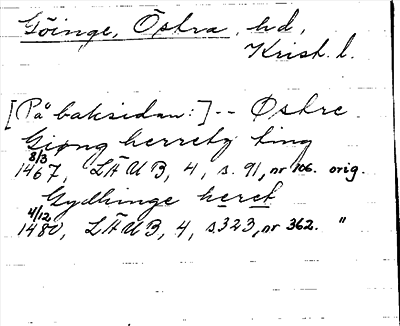 Göinge, Östra, hd,
Krist. l.
[På baksidan:] -- Østre
Giøng herretz ting
8/3 1467, LÄUB, 4, s. 91, nr 106. orig.
Gydhinge heret
4/12 1480, LÄUB, 4, s. 323, nr 362. "